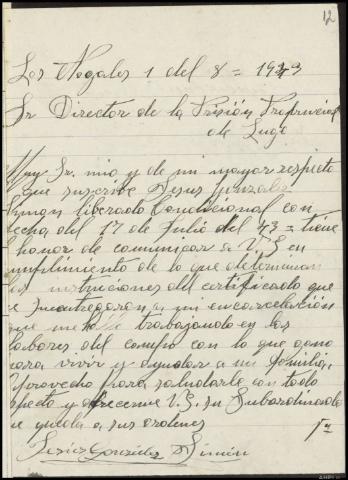 12
Los Nogales 1 del 8 = 1943
Sr Director de la Prisión Proprincial
de Lugo
Muy Sr. mio y de mi mayor respeto
que suscribe Jesus Gonzalez
Simon liberado Condicional con
fecha del 17 de Julio del 43 = tiene
honor de comunicar a V.S en
umplimiento de lo que determinan
las instruciones del certificado que
se mentregaron a mi encarcelación
que me trabajando en las
labores del campo con lo que gano
para vivir y ayudar a mi familia.
Aprovecho para saludarle con todo
specto y ofrecerme V.S. su Subordinado
e queda a sus ordenes
Jesus Gonzalez Simón